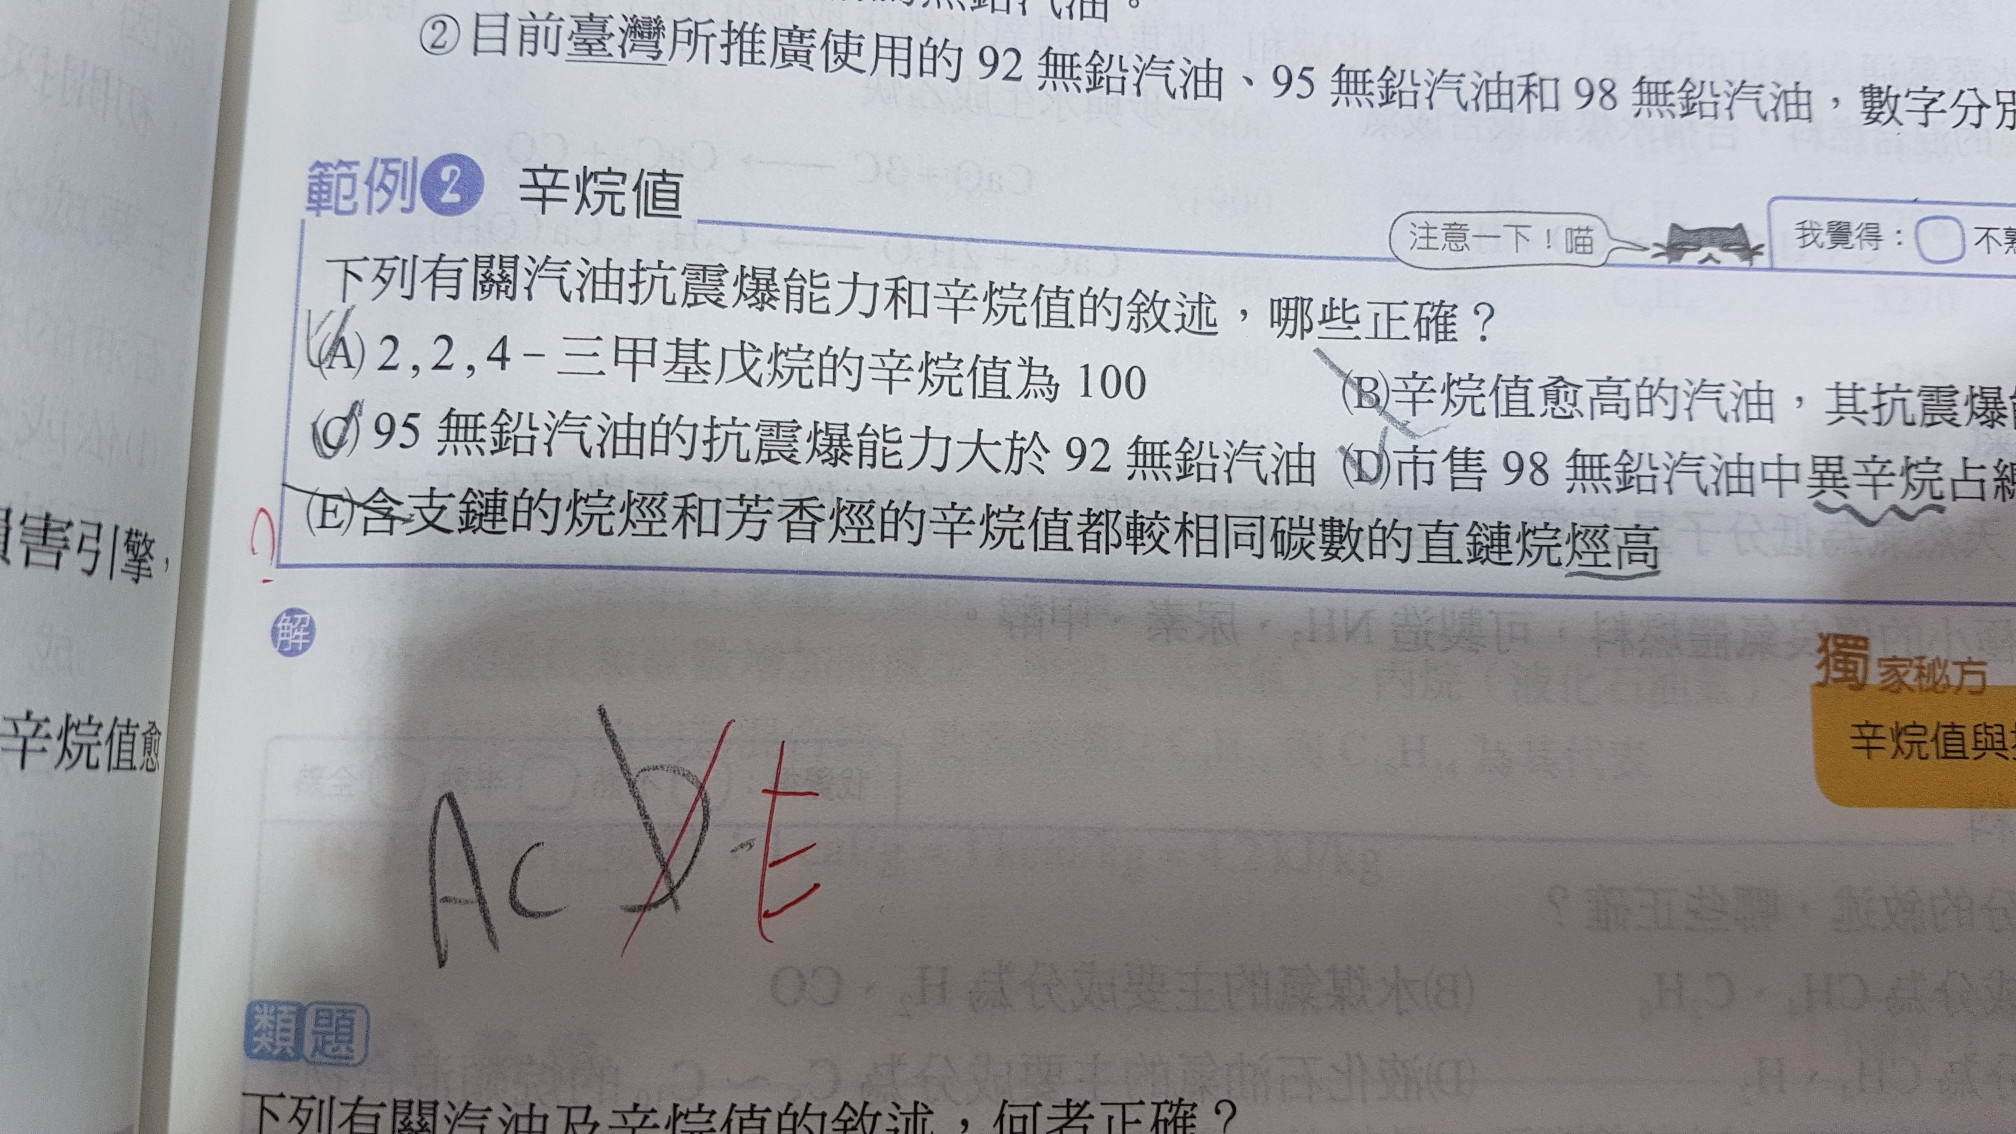 無鉛汽油。
②目前臺灣所推廣使用的 92 無鉛汽油、95 無鉛汽油和 98 無鉛汽油，數字分別
範例2 辛烷值
注意一下！喵
我覺得：
下列有關汽油抗震爆能力和辛烷值的敘述，哪些正確？
(A) 2,2,4－三甲基戊烷的辛烷值為 100 (B)辛烷值愈高的汽油，其抗震爆
(C) 95 無鉛汽油的抗震爆能力大於 92 無鉛汽油 (D)市售 98 無鉛汽油中異辛烷占
(E)含支鏈的烷烴和芳香烴的辛烷值都較相同碳數的直鏈烷烴高
?
害引擎，
解
獨家秘方
辛烷值愈
辛烷值與
AC D E
類題
下列有關汽油及辛烷值的敘述，何者正確？